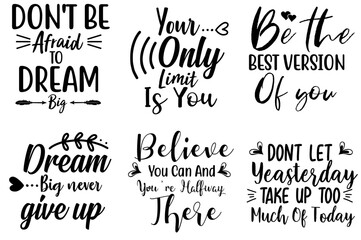 DON'T BE
Afraid
TO
DREAM
Big
Your
Only
Limit
Is You
Be the
BEST VERSION
Of you
Dream
Big never
give up
Believe
You Can And
You're Halfway
There
DONT LET
Yeasterday
TAKE UP TOO
Much Of Today